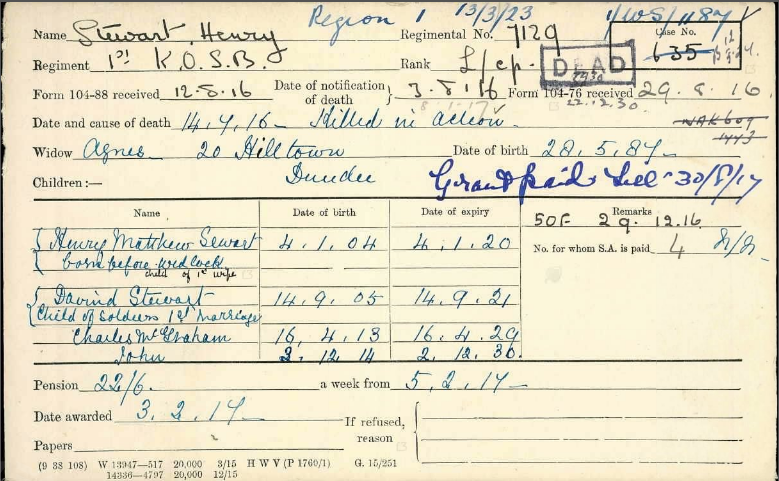 Region 1 13/3/23 1/WS/1187
Name Stewart, Henry Regimental No. 7129 Case No. 635
Regiment 1st K.O.S.B. Rank L/cp. DEAD
Form 104-88 received 12.8.16 Date of notification of death } 3.8.16 Form 104-76 received 29.8.16
8.1.17 22.12.30
Date and cause of death 14.7.16 - Killed in action
Widow Agnes 20 Hilltown Date of birth 28.5.87
Dundee
Children:— Grant paid till 30/8/17
Name Date of birth Date of expiry Remarks
SOF 29.12.16
{ Henry Matthew Sewart 4.1.04 4.1.20 No. for whom S.A. is paid 4
{ born before wedlock
child of 1st wife
{ Davind Stewart 14.9.05 14.9.21
{ Child of Soldiers 1st Marriage
Charles McGraham 16.4.13 16.4.29
John 2.12.14 2.12.30
Pension 22/6. a week from 5.2.17
Date awarded 3.2.17 If refused, reason
Papers
(9 38 108) W 13947—517 20,000 3/15 H W V (P 1760/1) G. 15/251
14336—4797 20,000 12/15